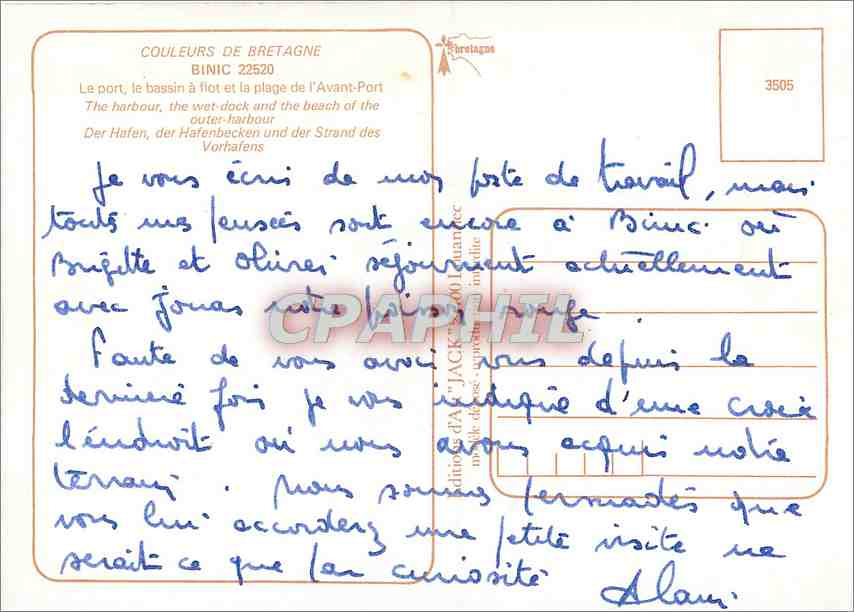 COULEURS DE BRETAGNE
BINIC 22520
Le port, le bassin à flot et la plage de l'Avant-Port
The harbour, the wet-dock and the beach of the
outer-harbour
Der Hafen, der Hafenbecken und der Strand des
Vorhafens
bretagne
3505
Je vous écris de mon poste de travail, mais
toutes mes pensées sont encore à Binic où
Brigitte et Olivier séjournent actuellement
avec Jonas notre poisson rouge.
Faute de vous avoir vus depuis la
dernière fois je vous indique d'une croix
l'endroit où nous avons acquis notre
terrain. Nous sommes persuadés que
vous lui accorderez une petite visite ne
serait ce que par curiosité
Alain.
Editions d'Art "JACK" Louannec
modèle déposé - reproduction interdite
CPAPHIL